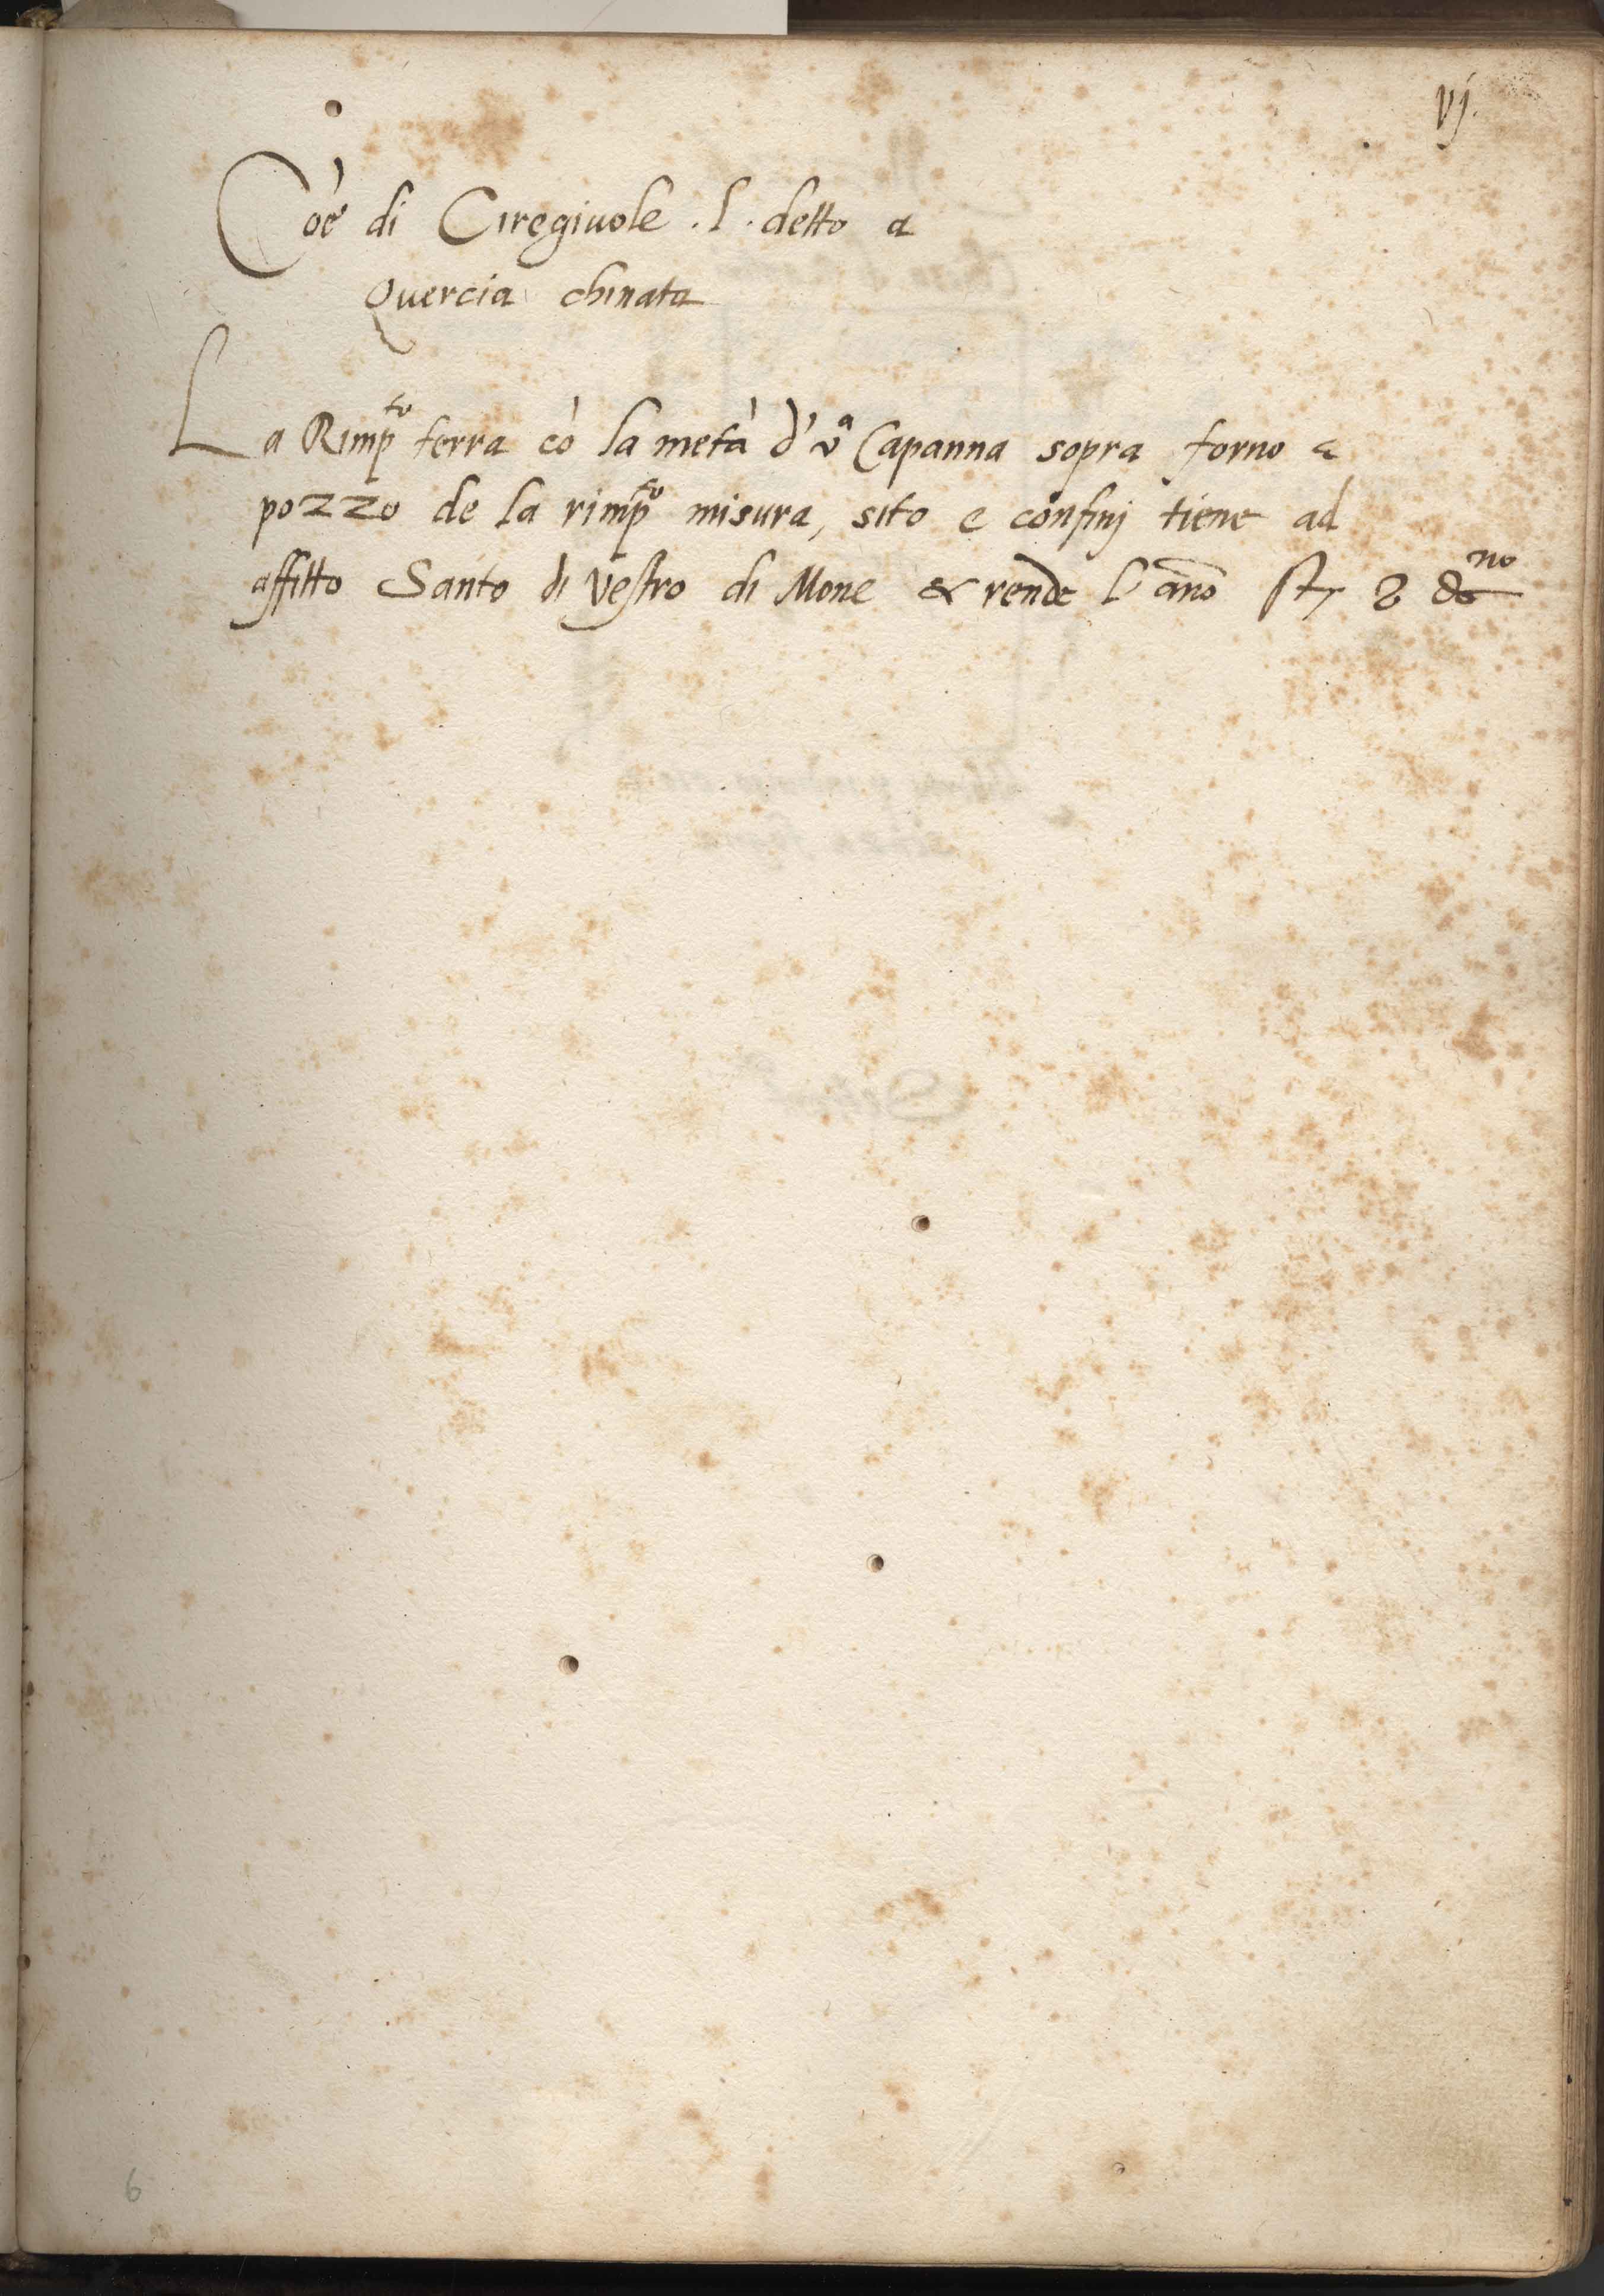 vj.
Coe di Ciregiuole .l. detto a
Quercia chinata
La Rimp.to terra cò la metà d' va Capanna sopra forno e
pozzo de la rimp.to misura, sito e confinj tiene ad
affitto Santo di Vestro di Mone & rende l' año st 8 gno
6